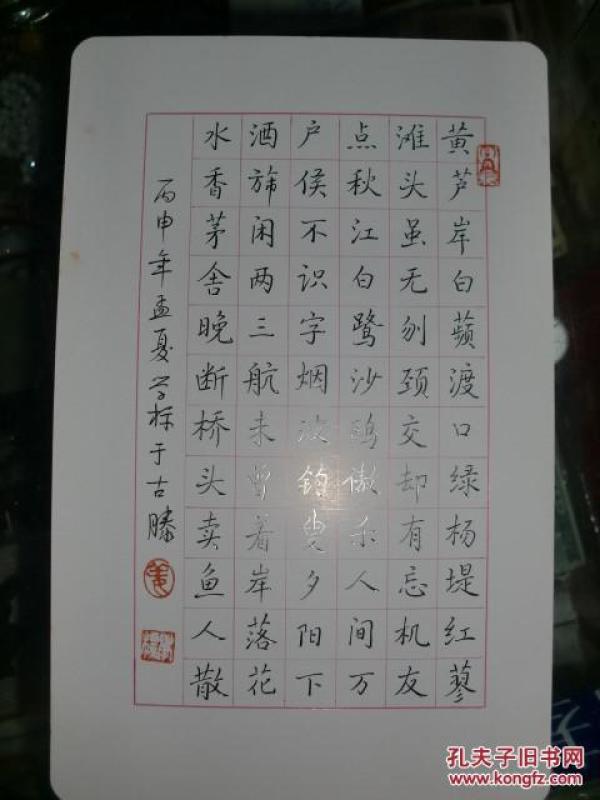 黄芦岸白蘋渡口绿杨堤红蓼
滩头虽无刎颈交却有忘机友
点秋江白鹭沙鸥傲杀人间万
户侯不识字烟波钓叟夕阳下
酒旆闲两三航未曾着岸落花
水香茅舍晚断桥头卖鱼人散
丙申年孟夏学标于古滕
姜
孔夫子旧书网
www.kongfz.com